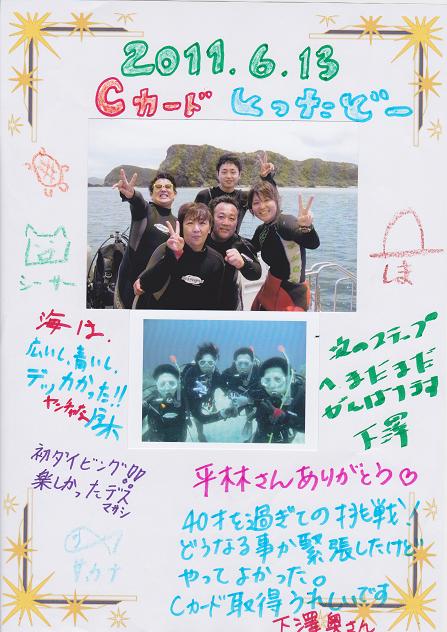 2011.6.13
Cカード とったどー
シーサー
しま
海は、
広いし、青いし、
デッカかった!!
ヤンチャな
次のステップ
へまだまだ
がんばります
下澤
初ダイビング!!!
楽しかったデス
マガシ
平林さんありがとう♡
40才を過ぎての挑戦!
どうなる事か緊張したけど
やってよかった。
Cカード取得うれしいです
下澤奥さん
サカナ